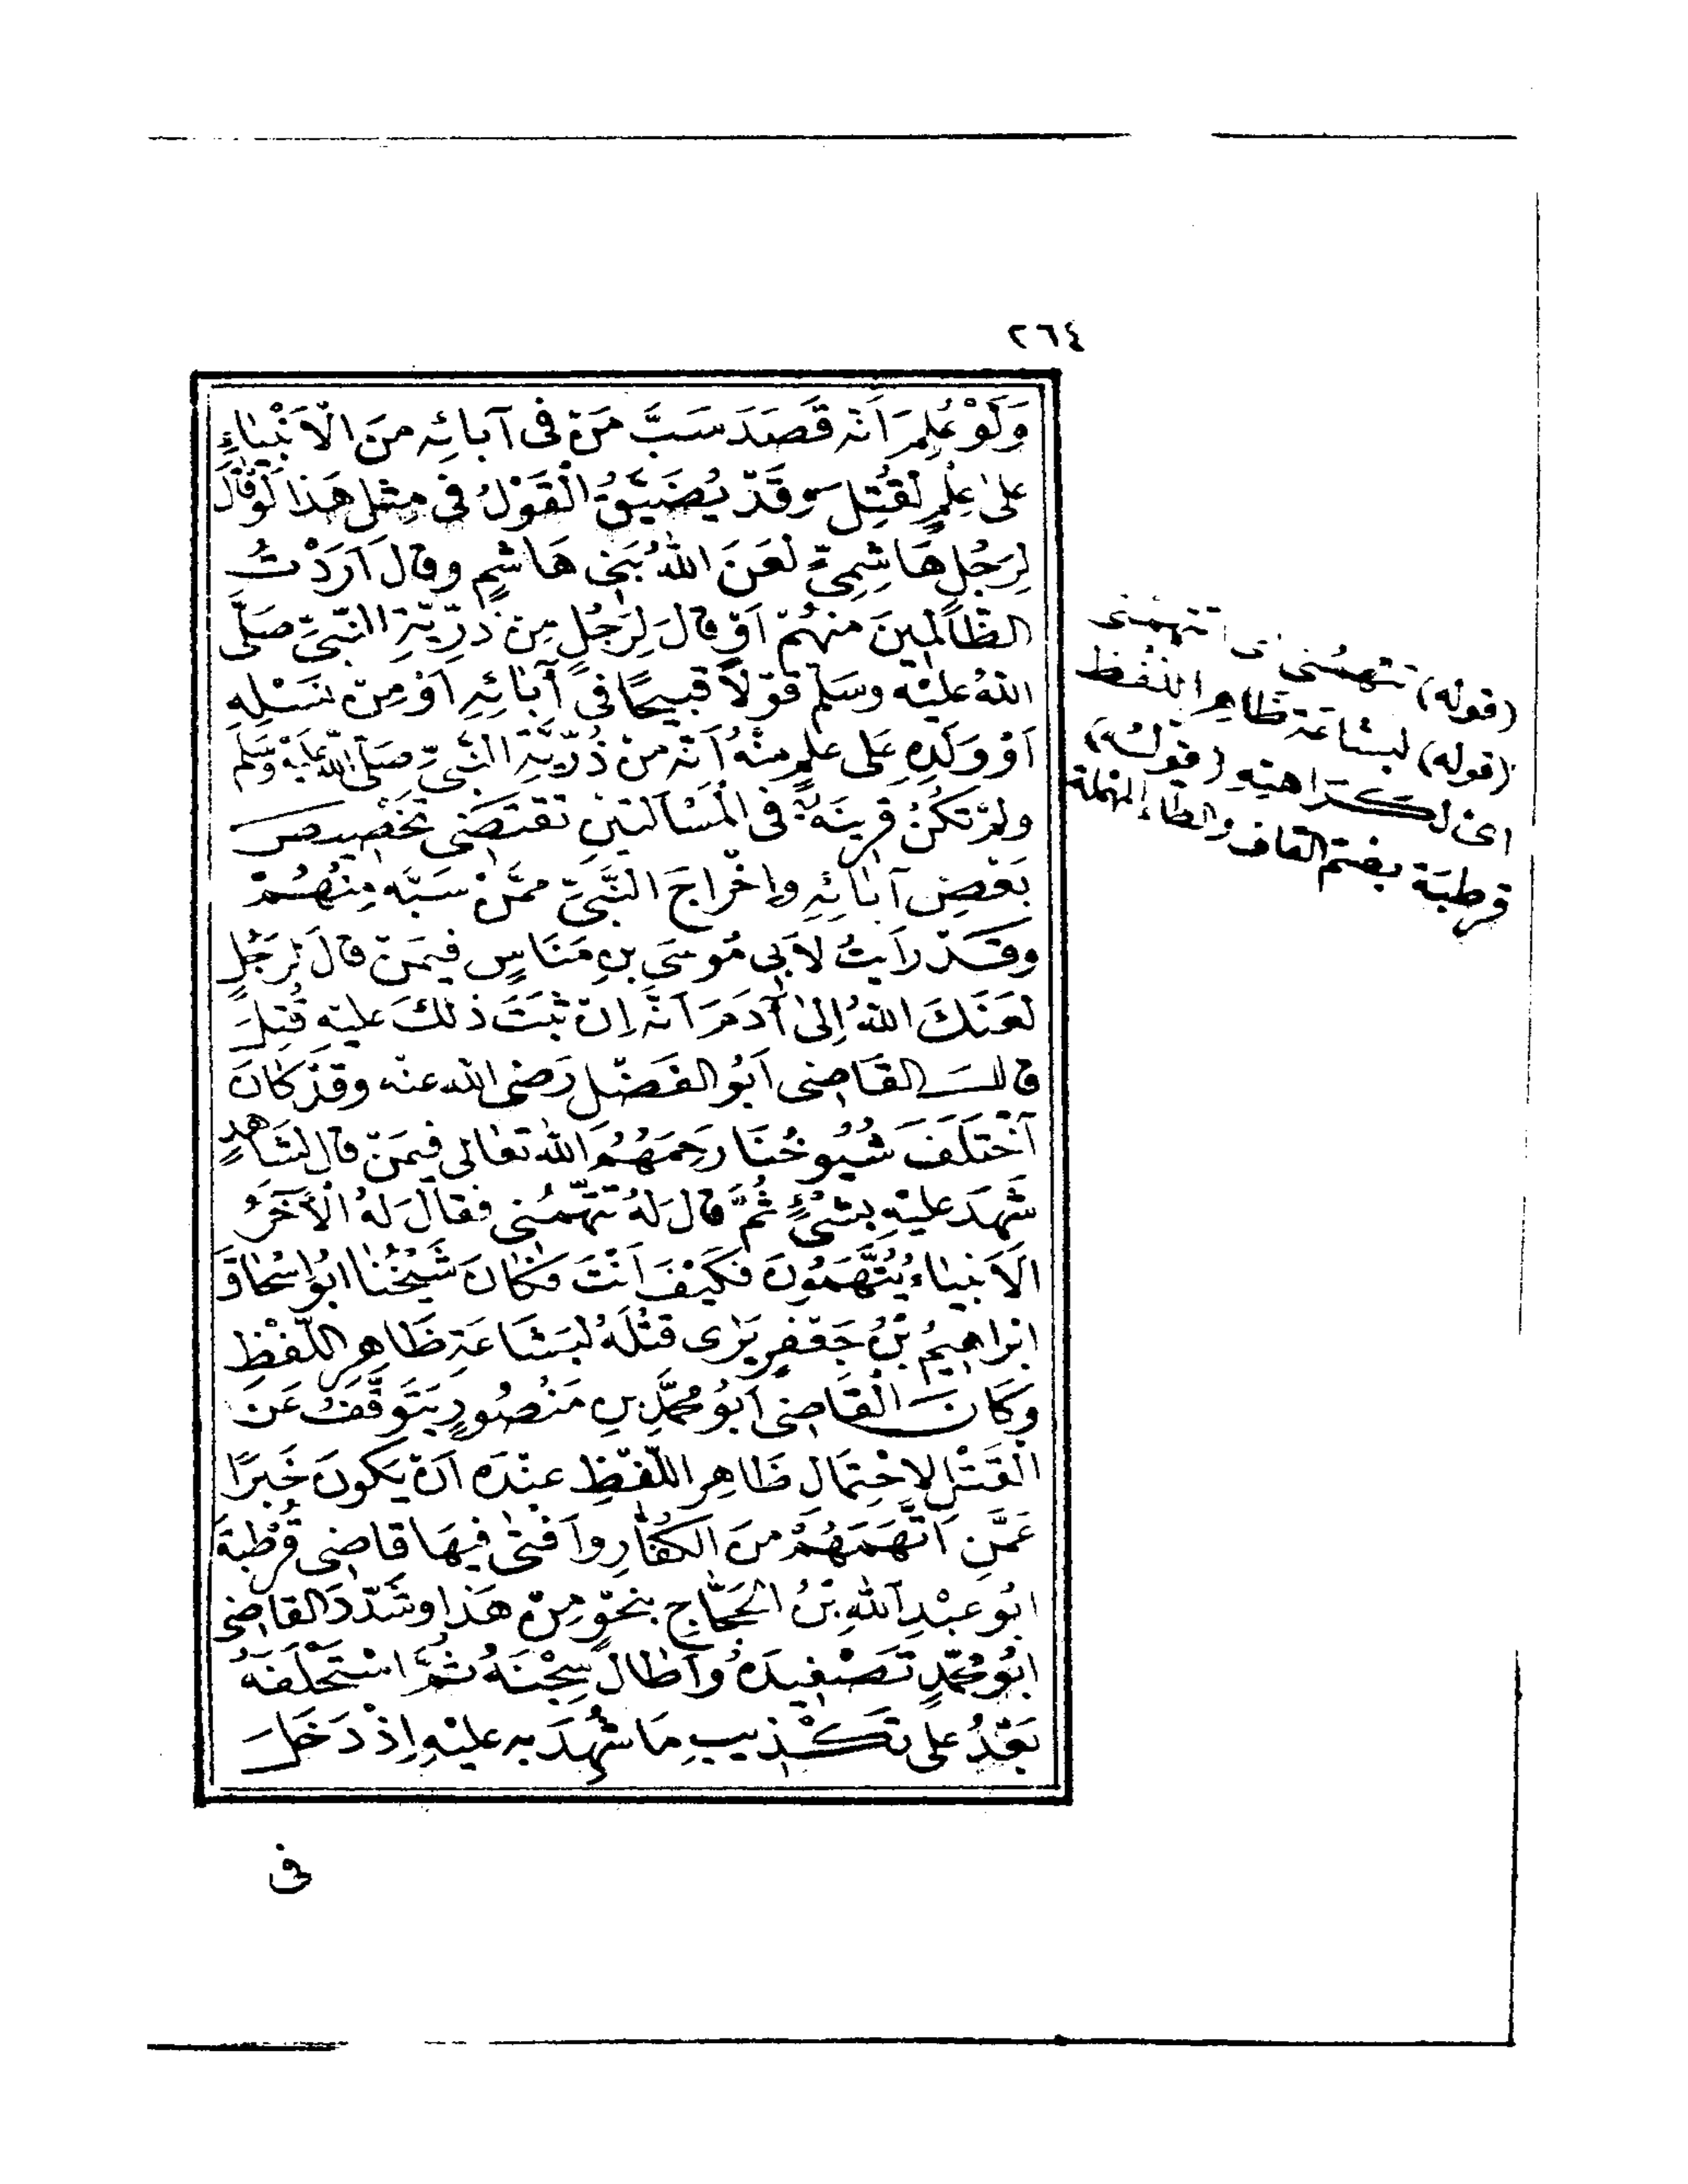 ٢٦٤
وَلَوْ عُلِمَ اَنَّهُ قَصَدَ سَبَّ مَنْ فى آبائِه مِنَ الْاَنْبِيٰاءِ
عَلىٰ عِلْمٍ لَقُتِلَ وَقَدْ يُضَيَّقُ الْقَوْلُ فى مِثْلِ هَذا لَوْ قَالَ
لِرَجُلٍ هَاشِمِيٍّ لَعَنَ اللهُ بَنى هَاشِمٍ وقال اَرَدْتُ
الظَّالِمينَ مِنْهُمْ اَوْ قالَ لِرَجُلٍ مِنْ ذُرِّيَّةِ النَّبِيِّ صَلَّى
اللهُ عليْه وسَلم قَوْلاً قَبيحًا فى آبٰائِهِ اَوْ مِنْ نَسْلِهِ
اَوْ وَلَدِهِ عَلى عِلْمٍ مِنْهُ اَنَّهُ مِنْ ذُرِّيَّةِ النَّبِيِّ صَلَّى اللهُ عَلَيْهِ وَسَلَّمَ
ولَمْ تَكُنْ قَرينَةٌ فى الْمَسْاَلَتَيْنِ تَقْتَضى تَخْصيصَ
بَعْضِ آبٰائِهِ واِخْراجَ النَّبِيِّ مِمَّنْ سَبَّه مِنْهُمْ
وقَدْ رَاَيْتُ لاَبى مُوسَى بنِ مَنَاسٍ فيمَنْ قالَ لِرَجُلٍ
لَعَنَكَ اللهُ اِلىٰ آدَمَ اَنَّهُ اِنْ ثَبَتَ ذلِكَ عليْهِ قُتِلَ
قالَ القَاضِى اَبُو الفَضْلِ رَضى الله عنْه وقَدْ كانَ
اخْتَلَفَ شُيُوخُنَا رَحِمَهُمُ اللهُ تعَالى فيمَنْ قال لِشَاهِدٍ
شَهِدَ عليْهِ بِشَىْءٍ ثُمَّ قالَ لَهُ تَتَّهِمُنى فقالَ لَهُ الْآخَرُ
الْاَنْبيٰاءُ يُتَّهَمُونَ فَكَيْفَ اَنْتَ فكانَ شَيْخُنَا ابُو اِسْحٰاقَ
اِبْراهيمُ بْنُ جَعْفَرٍ يَرٰى قَتْلَهُ لِبَشَاعَةِ ظَاهِرِ اللَّفْظِ
وَكَانَ الْقَاضِى اَبُو مُحَمَّدِ بنِ مَنْصُورٍ يَتَوَقَّفُ عَنِ
الْقَتْلِ لِاحْتِمَالِ ظَاهِرِ اللَّفْظِ عِنْدَه اَنْ يَكونَ خَبَرًا
عَمَّنِ اتَّهَمَهُمْ مِنَ الكُفّارِ واَفْتىٰ فيهَا قاضِى قُرْطُبَةَ
ابُو عَبْدِ اللهِ بْنُ الحَجَّاجِ بنَحْوٍ مِنْ هَذا وشَدَّدَ القاضِى
ابُو مُحَمَّدٍ تَصْفيدَهُ واَطَالَ سِجْنَهُ ثُمَّ اسْتَحْلَفَهُ
بَعْدُ عَلى تَكْذيبِ مَا شُهِدَ بِه عليْهِ اِذْ دَخَلَ
فى
(قوله) تتهمنى اى اتتهمنى
(قوله) لبشاعة ظاهر اللفظ
اى لكراهيته (قوله)
قرطبة بضم القاف والطاء المهملة